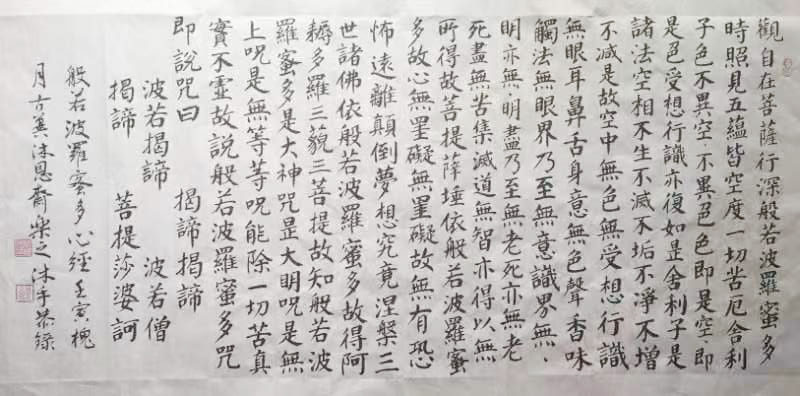 觀自在菩薩行深般若波羅蜜多
時照見五蘊皆空度一切苦厄舍利
子色不異空、不異色色即是空、即
是色受想行識亦復如是舍利子是
諸法空相不生不滅不垢不淨不增
不減是故空中無色無受想行識
無眼耳鼻舌身意無色聲香味
觸法無眼界乃至無意識界無、
明亦無、明盡乃至無老死亦無老
死盡無苦集滅道無智亦得以無
所得故菩提薩埵依般若波羅蜜
多故心無罣礙無罣礙故無有恐
怖遠離顛倒夢想究竟涅槃三
世諸佛依般若波羅蜜多故得阿
耨多羅三藐三菩提故知般若波
羅蜜多是大神咒是大明咒是無
上咒是無等等咒能除一切苦真
實不虛故說般若波羅蜜多咒
即說咒曰 揭諦揭諦
波若揭諦 波若僧
揭諦 菩提莎婆訶
般若波羅蜜多心經 壬寅槐
月古冀沐恩齋樂之沐手恭錄